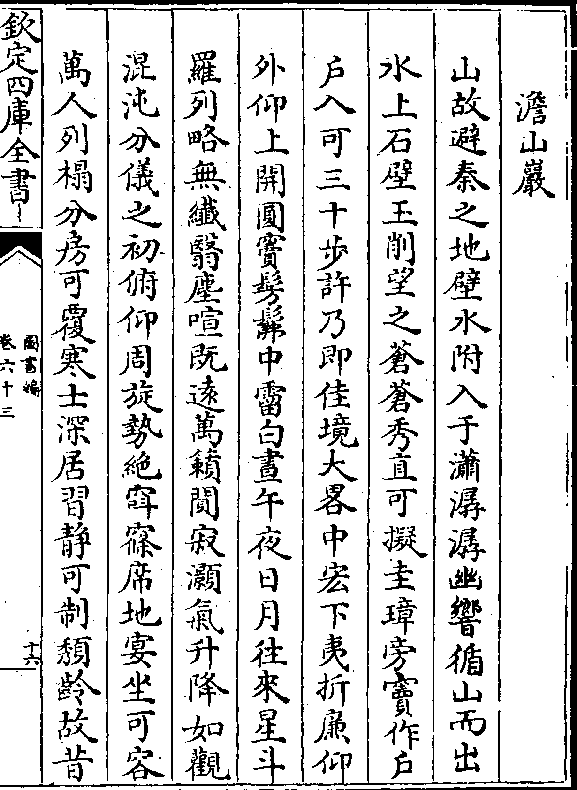 澹山巖
山故避秦之地壁水附入于瀟潺潺幽響循山而出
水上石壁玉削望之蒼蒼秀直可擬圭璋旁竇作户
户入可三十步許乃即佳境大畧中宏下夷折㢘仰
外仰上開圓竇髣髴中霤白晝午夜日月往來星斗
羅列略無纖翳塵喧既遠萬籟闃寂灝氣升降如觀
混沌分儀之初俯仰周旋勢絶窅窱席地宴坐可容
萬人列榻分房可覆寒士深居習静可制頽齡故昔
欽定四庫全書
圖書編
卷六十三
十六